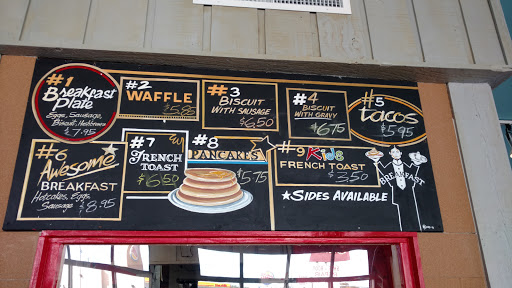 #1
Breakfast
Plate
Eggs, Sausage,
Biscuit, Hashbrown
$7.95
#2
WAFFLE
$5.85
#3
BISCUIT
WITH SAUSAGE
$6.50
#4
BISCUIT
WITH GRAVY
$6.75
#5
tacos
$5.95
#6
Awesome
BREAKFAST
Hotcakes, Eggs
Sausage $8.95
#7
FRENCH
TOAST
$6.50
#8
PANCAKES
$5.75
#9 Kids
FRENCH TOAST
$3.50
★SIDES AVAILABLE
BREAKFAST